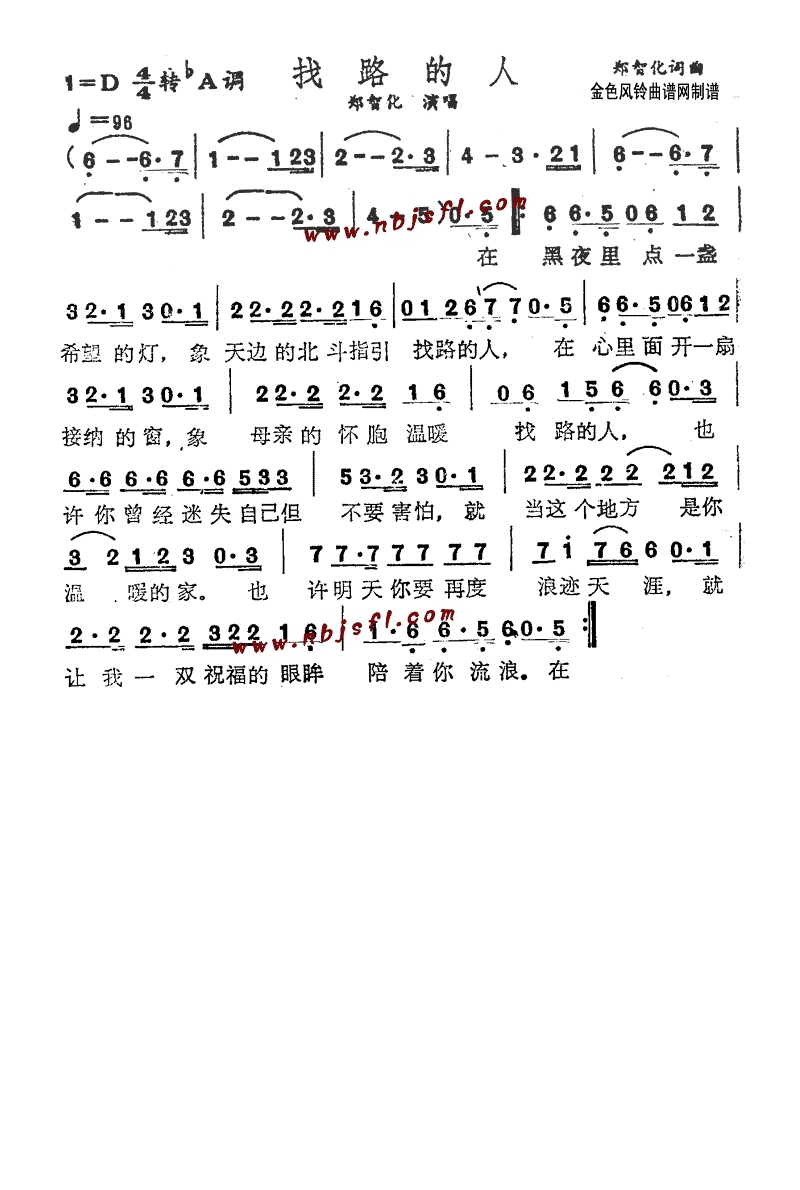 1=D 4/4 转♭A调 找路的人 郑智化词曲
郑智化 演唱 金色风铃曲谱网制谱
♩=96
(6--6·7|1--123|2--2·3|4-3·21|6--6·7|
1--123|2--2·3|4·5)0·5‖:66·506 12
www.nbjsfl.com
在 黑夜里 点一盏
32·130·1|22·22·216|0126770·5|66·50612|
希望的灯，象 天边的北斗指引 找路的人， 在 心里面开一扇
32·130·1|22·2 2·2 16|06 156 60·3|
接纳的窗，象 母亲的怀胞温暖 找 路的人， 也
6·6 6·6 6·6 533|53·230·1|22·222 212|
许你曾经迷失自己但 不要害怕，就 当这个地方 是你
3 2 123 0·3|77·777 77|7i 766 0·1|
温 暖的家。也 许明天你要再度 浪迹天 涯，就
2·2 2·2 322 16|1·6 6·5 60·5:‖
www.nbjsfl.com
让我一 双祝福的眼眸 陪着你流浪。在